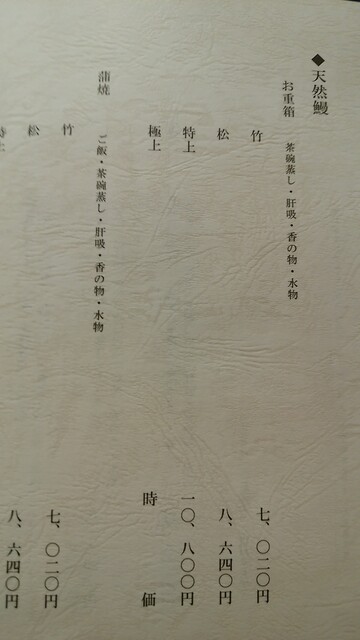 ◆天然鰻
お重箱　茶碗蒸し・肝吸・香の物・水物
竹　七、〇二〇円
松　八、六四〇円
特上　一〇、八〇〇円
極上　時価
蒲焼　ご飯・茶碗蒸し・肝吸・香の物・水物
竹　七、〇二〇円
松　八、六四〇円